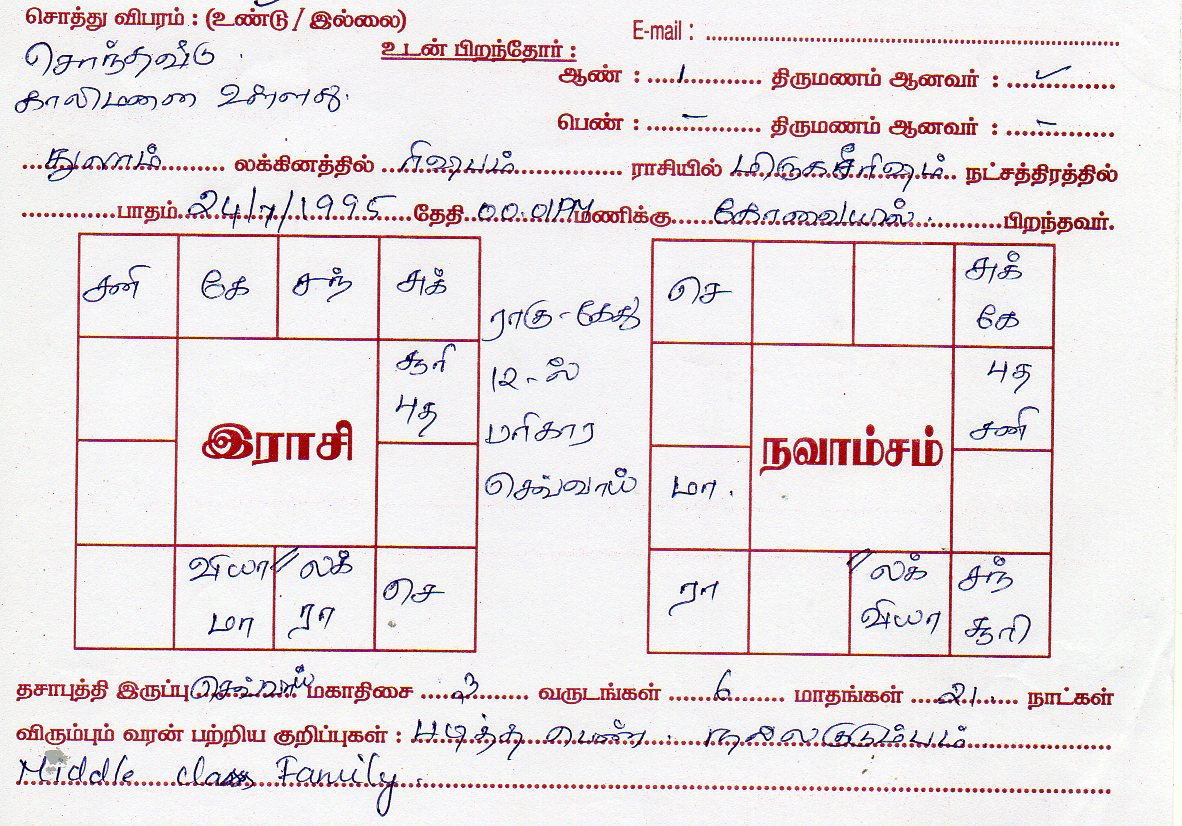 சொத்து விபரம் : (உண்டு / இல்லை)
E-mail :
சொந்தவீடு .
உடன் பிறந்தோர் :
ஆண் : 1 திருமணம் ஆனவர் : ✓
காலிமனை உள்ளது.
பெண் : – திருமணம் ஆனவர் : –
துலாம் லக்கினத்தில் ரிஷபம் ராசியில் மிருகசீரிஷம் நட்சத்திரத்தில்
பாதம் 24/7/1995 தேதி 00.01PM மணிக்கு கோவையில். பிறந்தவர்.
சனி கே சந் சுக்
சூரி
புத
இராசி
வியா லக் செ
மா ரா
ராகு - கேது
12 - ல்
பரிகார
செவ்வாய்
செ சுக்
கே
புத
சனி
நவாம்சம்
மா.
ரா லக் சந்
வியா சூரி
தசாபுத்தி இருப்பு செவ்வாய் மகாதிசை 3 வருடங்கள் 6 மாதங்கள் 21 நாட்கள்
விரும்பும் வரன் பற்றிய குறிப்புகள் : படித்த பெண். நல்லகுடும்பம்
Middle class Family.